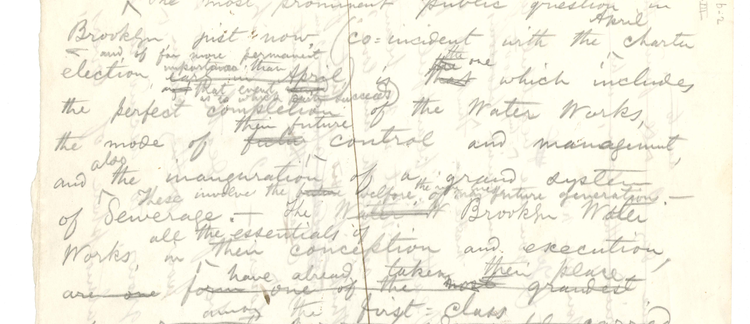 the most prominent public question in
April
Brooklyn just now (co=incident with the charter
and of far more permanent
importance than the one
election early in April) is that which includes
that event
is to which party succeeds)
the perfect completion of the Water Works,
their future
the mode of control and management,
also
and the inauguration of a grand system
These involve the future welfare of future generations.—
of Sewerage.— The Water W Brooklyn Water
all the essentials of
Works, in their conception and execution,
have already taken their place
are one form one of the most grandest
among the first=class